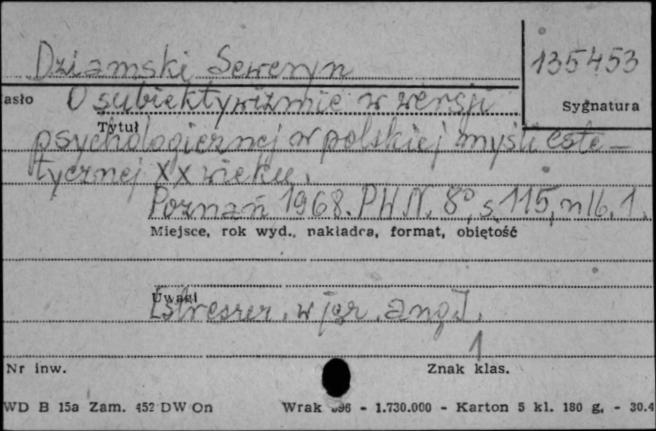 Dziamski Seweryn
135453
asło
O subiektywizmie w wersji
Sygnatura
Tytuł
psychologicznej w polskiej myśli este-
tycznej XX wieku.
Poznań 1968. PWN. 8°, s. 115, nlb. 1.
Miejsce, rok wyd., nakładca, format, objętość
Uwagi
[streszcz. w jęz. ang.].
1
Nr inw.
Znak klas.
WD B 15a Zam. 452 DW On
Wrak 696 - 1.730.000 - Karton 5 kl. 180 g. - 30.4